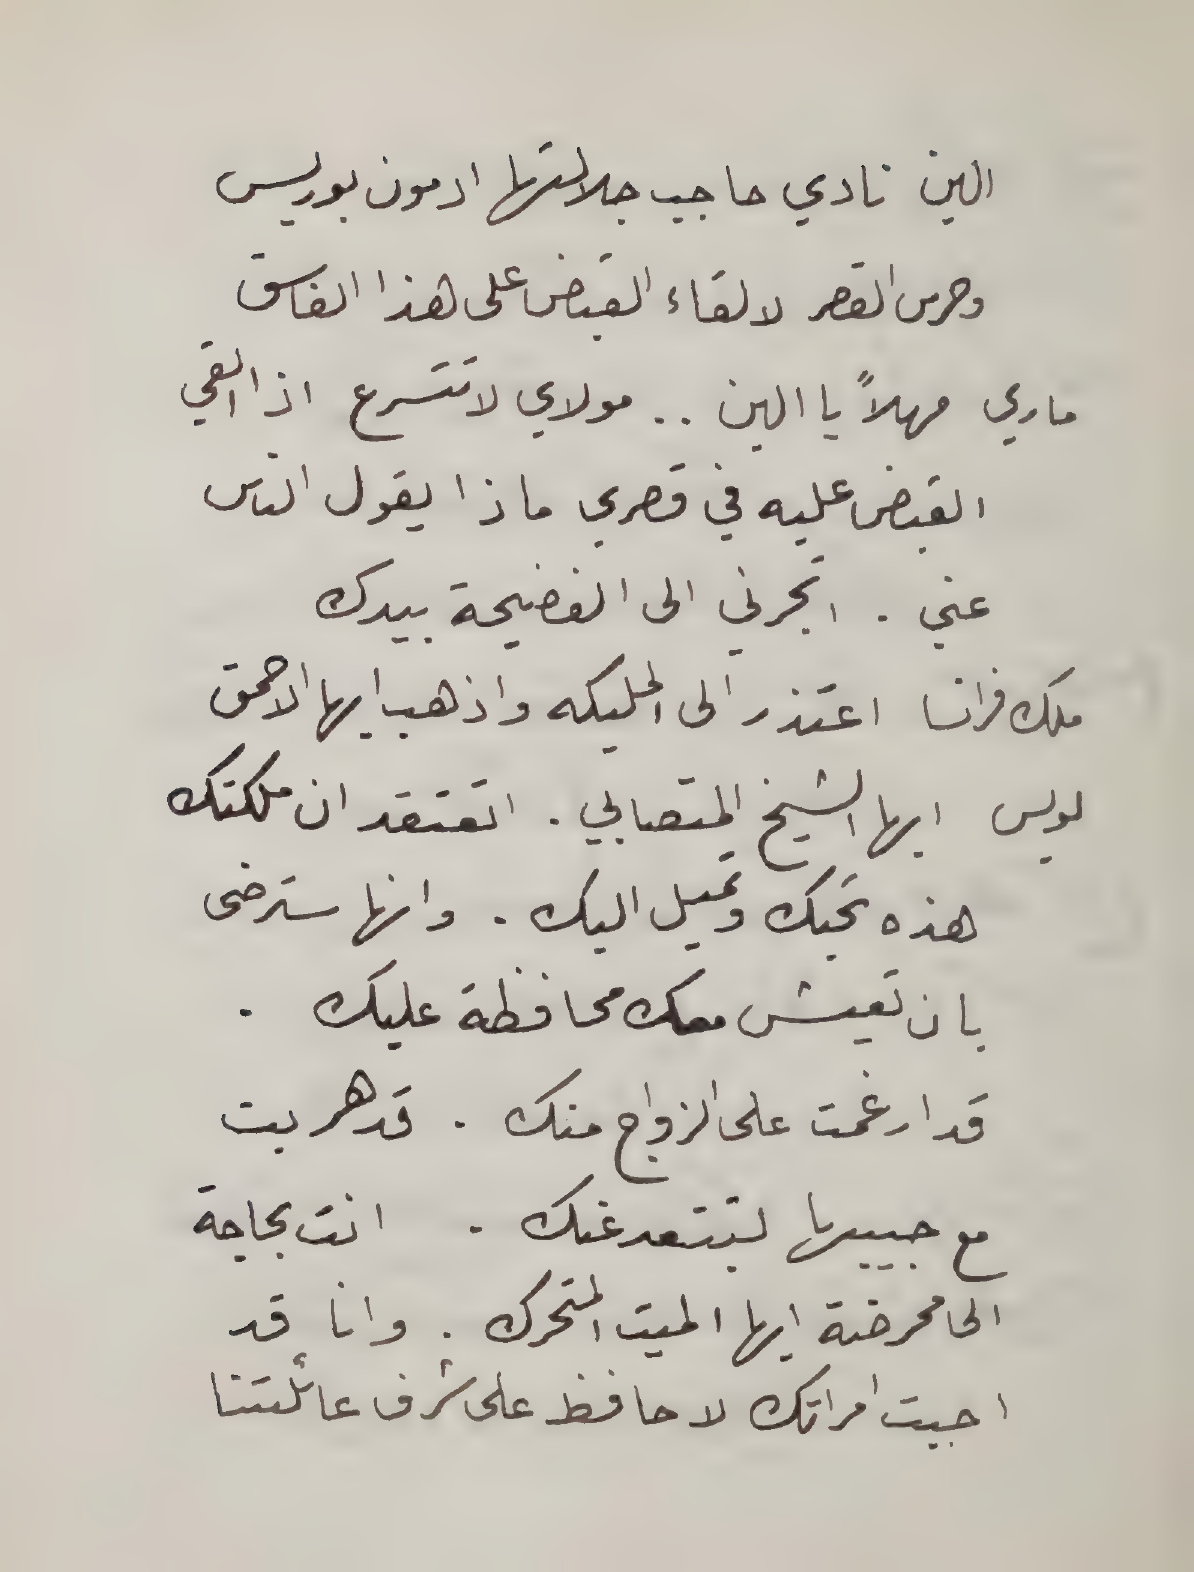 الين نادي حاجب جلالتها ادمون بوريس
وحرس القصر لالقاء القبض على هذا الفاسق
ماري مهلاً يا الين .. مولاي لا تتسرع اذا القي
القبض عليه في قصري ماذا يقول الناس
عني . اتجرني الى الفضيحة بيدك
ملك فرانسا اعتذر الى المليكه واذهب ايها الاحمق
لويس ايها الشيخ المتصابي . اتعتقد ان ملكتك
هذه تحبك وتميل اليك . وانها سترضى
بان تعيش معك محافظة عليك .
قد ارغمت على الزواج منك . قد هربت
مع حبيبها لتبتعد عنك . انت بحاجة
الى ممرضة ايها الميت المتحرك . وانا قد
احببت امراتك لاحافظ على شرف عائلتنا